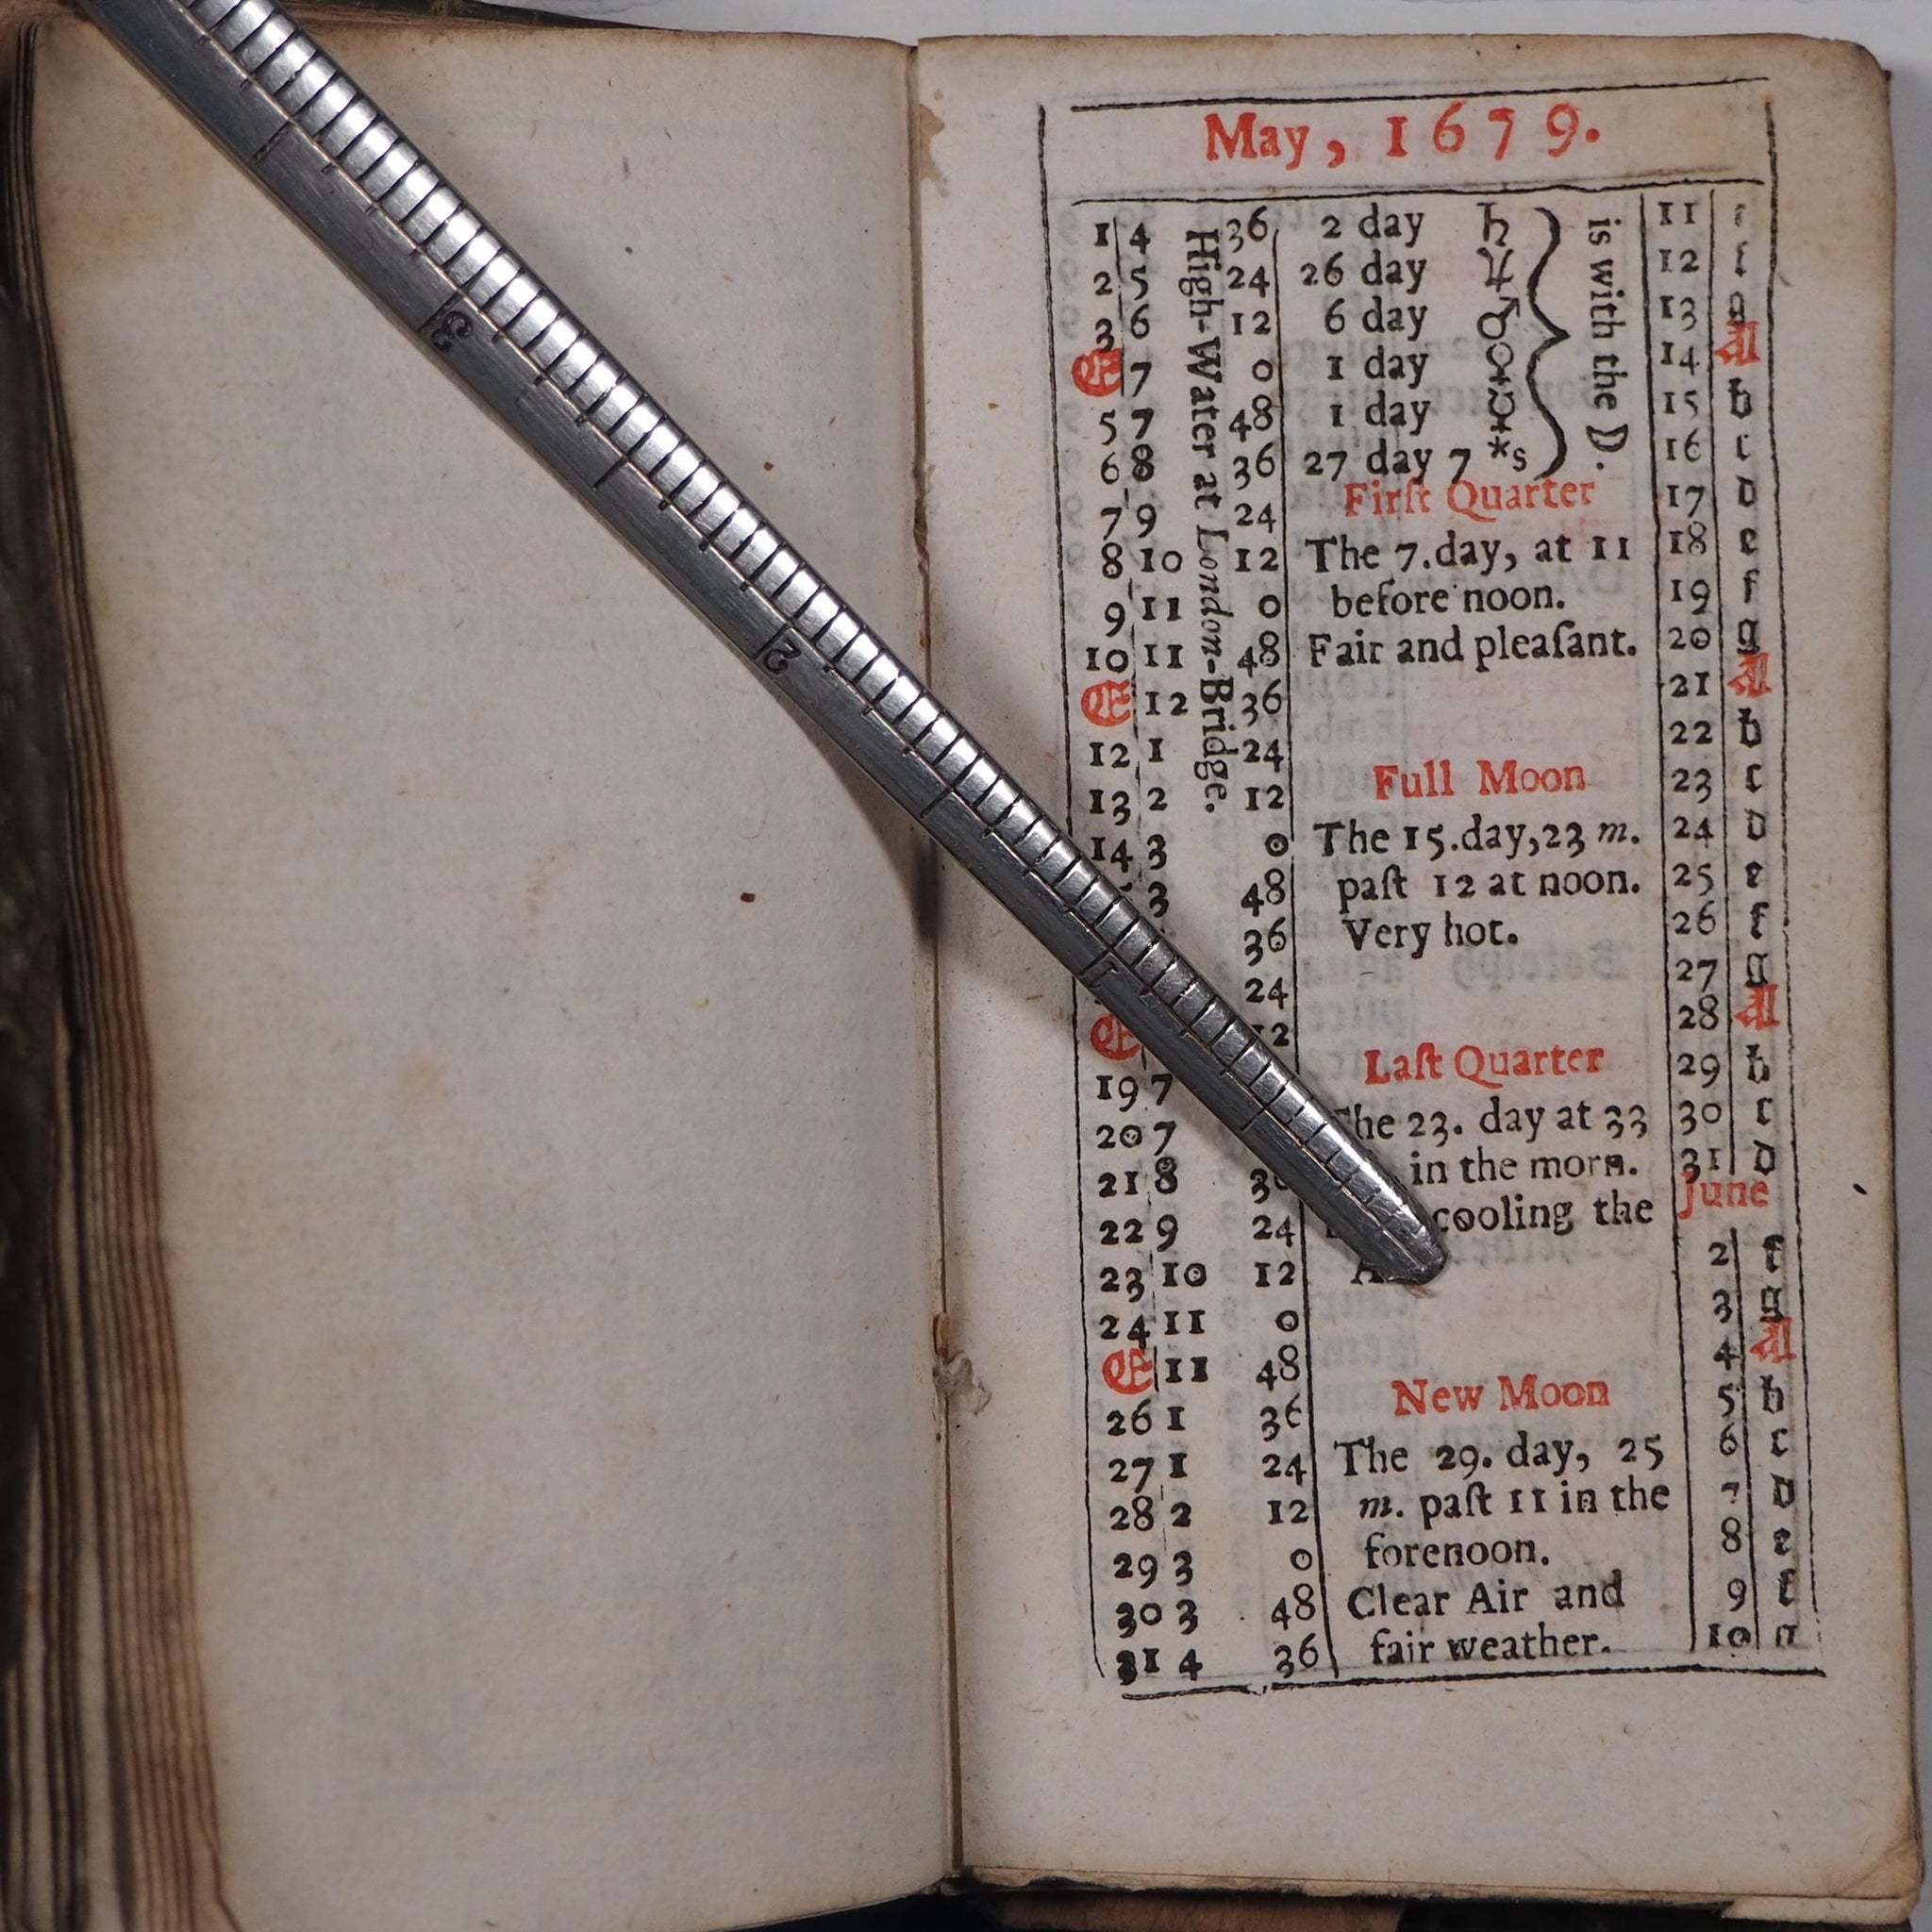 May, 1679.
1 4 36 2 day ♄ 11
2 5 24 26 day ♃ 12 f
3 6 12 6 day ♂ 13 g
E 7 0 1 day ♀ 14 A
5 7 48 1 day ☿ 15 b
6 8 36 27 day 7 *s 16 c
High-Water at London-Bridge.
is with the ☽.
First Quarter 17 d
7 9 24
8 10 12 The 7. day, at 11 18 e
9 11 0 before noon. 19 f
10 11 48 Fair and pleaſant. 20 g
E 12 36 21 A
12 1 24 22 b
Full Moon 23 c
13 2 12
14 3 0 The 15. day, 23 m. 24 d
3 48 paſt 12 at noon. 25 e
36 Very hot. 26 f
24 27 g
E 12 28 A
Laſt Quarter 29 b
19 7
20 7 The 23. day at 33 30 c
21 8 in the morn. 31 d
June
22 9 24 cooling the
23 10 12 2 f
24 11 0 3 g
E 11 48 4 A
New Moon 5 b
26 1 36 6 c
27 1 24 The 29. day, 25
28 2 12 m. paſt 11 in the 7 d
29 3 0 forenoon. 8 e
30 3 48 Clear Air and 9 f
31 4 36 fair weather. 10 g
3
2
1